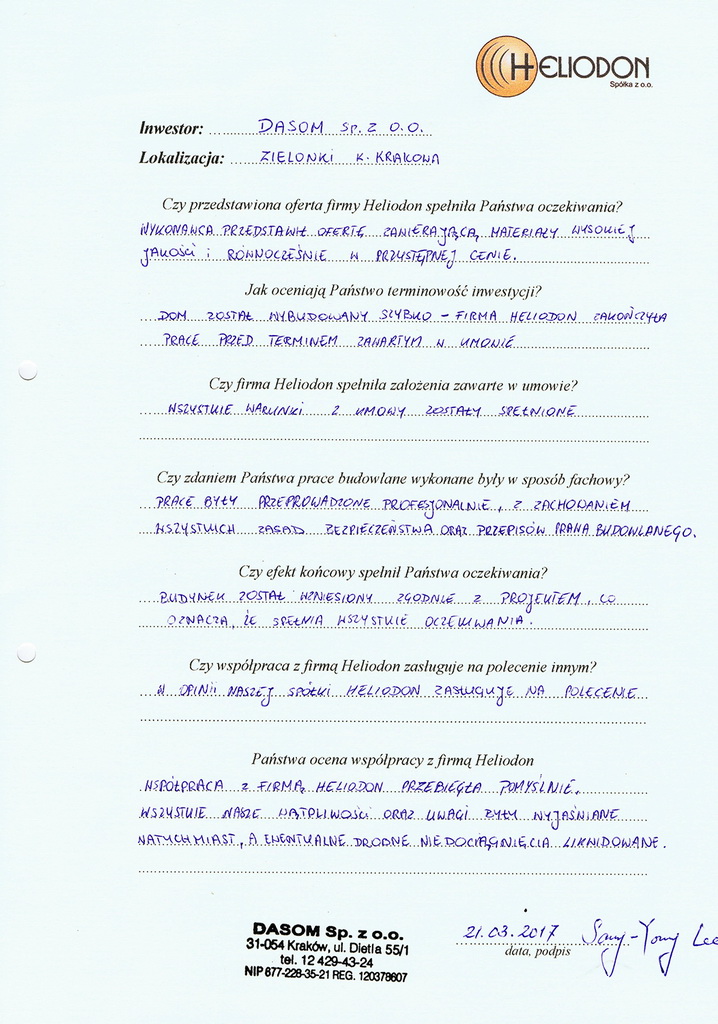 HELIODON
Spółka z o.o.
Inwestor: DASOM SP. Z O.O.
Lokalizacja: ZIELONKI K. KRAKOWA
Czy przedstawiona oferta firmy Heliodon spełniła Państwa oczekiwania?
WYKONAWCA PRZEDSTAWIŁ OFERTĘ ZAWIERAJĄCĄ MATERIAŁY WYSOKIEJ
JAKOŚCI I RÓWNOCZEŚNIE W PRZYSTĘPNEJ CENIE.
Jak oceniają Państwo terminowość inwestycji?
DOM ZOSTAŁ WYBUDOWANY SZYBKO - FIRMA HELIODON ZAKOŃCZYŁA
PRACE PRZED TERMINEM ZAWARTYM W UMOWIE
Czy firma Heliodon spełniła założenia zawarte w umowie?
WSZYSTKIE WARUNKI Z UMOWY ZOSTAŁY SPEŁNIONE
Czy zdaniem Państwa prace budowlane wykonane były w sposób fachowy?
PRACE BYŁY PRZEPROWADZONE PROFESJONALNIE, Z ZACHOWANIEM
WSZYSTKICH ZASAD BEZPIECZEŃSTWA ORAZ PRZEPISÓW PRAWA BUDOWLANEGO.
Czy efekt końcowy spełnił Państwa oczekiwania?
BUDYNEK ZOSTAŁ WZNIESIONY ZGODNIE Z PROJEKTEM, CO
OZNACZA, ŻE SPEŁNIA WSZYSTKIE OCZEKIWANIA.
Czy współpraca z firmą Heliodon zasługuje na polecenie innym?
W OPINII NASZEJ SPÓŁKI HELIODON ZASŁUGUJE NA POLECENIE
Państwa ocena współpracy z firmą Heliodon
WSPÓŁPRACA Z FIRMĄ HELIODON PRZEBIEGŁA POMYŚLNIE.
WSZYSTKIE NASZE WĄTPLIWOŚCI ORAZ UWAGI BYŁY WYJAŚNIANE
NATYCHMIAST, A EWENTUALNE DROBNE NIEDOCIĄGNIĘCIA LIKWIDOWANE.
DASOM Sp. z o.o.
31-054 Kraków, ul. Dietla 55/1
tel. 12 429-43-24
NIP 677-228-35-21 REG. 120378607
21.03.2017 Sang-Yong Lee
data, podpis